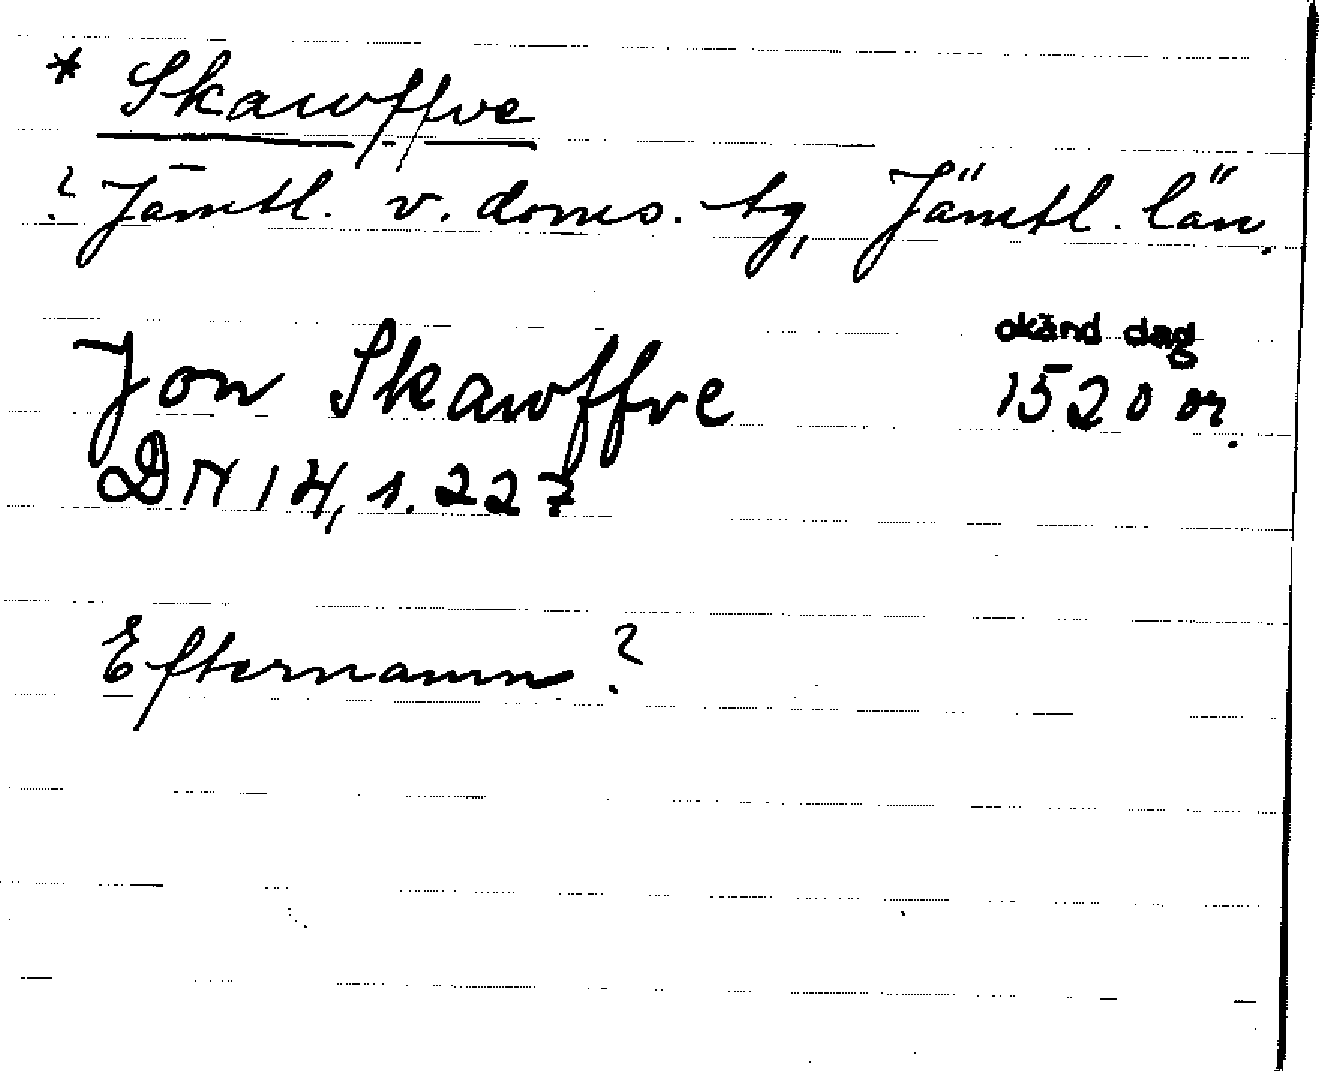 * Skawffve
? Jämtl. v. doms. tg, Jämtl. län.
okänd dag
Jon Skawffve 1520 or.
DN 14, s. 227
Efternamn?